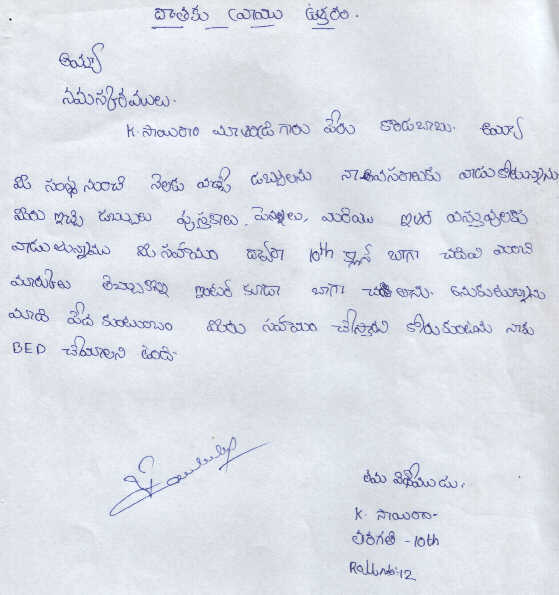 దాతకు వ్రాయు ఉత్తరం.
అయ్యా
నమస్కారములు.
K. సాయిరాం మా నాన్న గారు పేరు కొండబాబు. అయ్యా
మీ సంస్థ నుంచి నెలకు వచ్చే డబ్బులను నా అవసరాలకు వాడుకొంటున్నాను
మీరు ఇచ్చే డబ్బులు పుస్తకాలు, పెన్నులు, మరియు ఇతర వస్తువులకు
వాడుతున్నాము మీ సహాయం ద్వారా 10th క్లాస్ బాగా చదివి మంచి
మార్కులు తెచ్చుకొని ఇంటర్ కూడా బాగా చదవాలని అనుకుంటున్నాను
మాది పేద కుటుంబం మీరు సహాయం చేస్తారని కోరుకుంటూ నాకు
BED చేయాలని ఉంది.
తమ విధేయుడు,
K. సాయిరాం
తరగతి - 10th
Roll no: 12